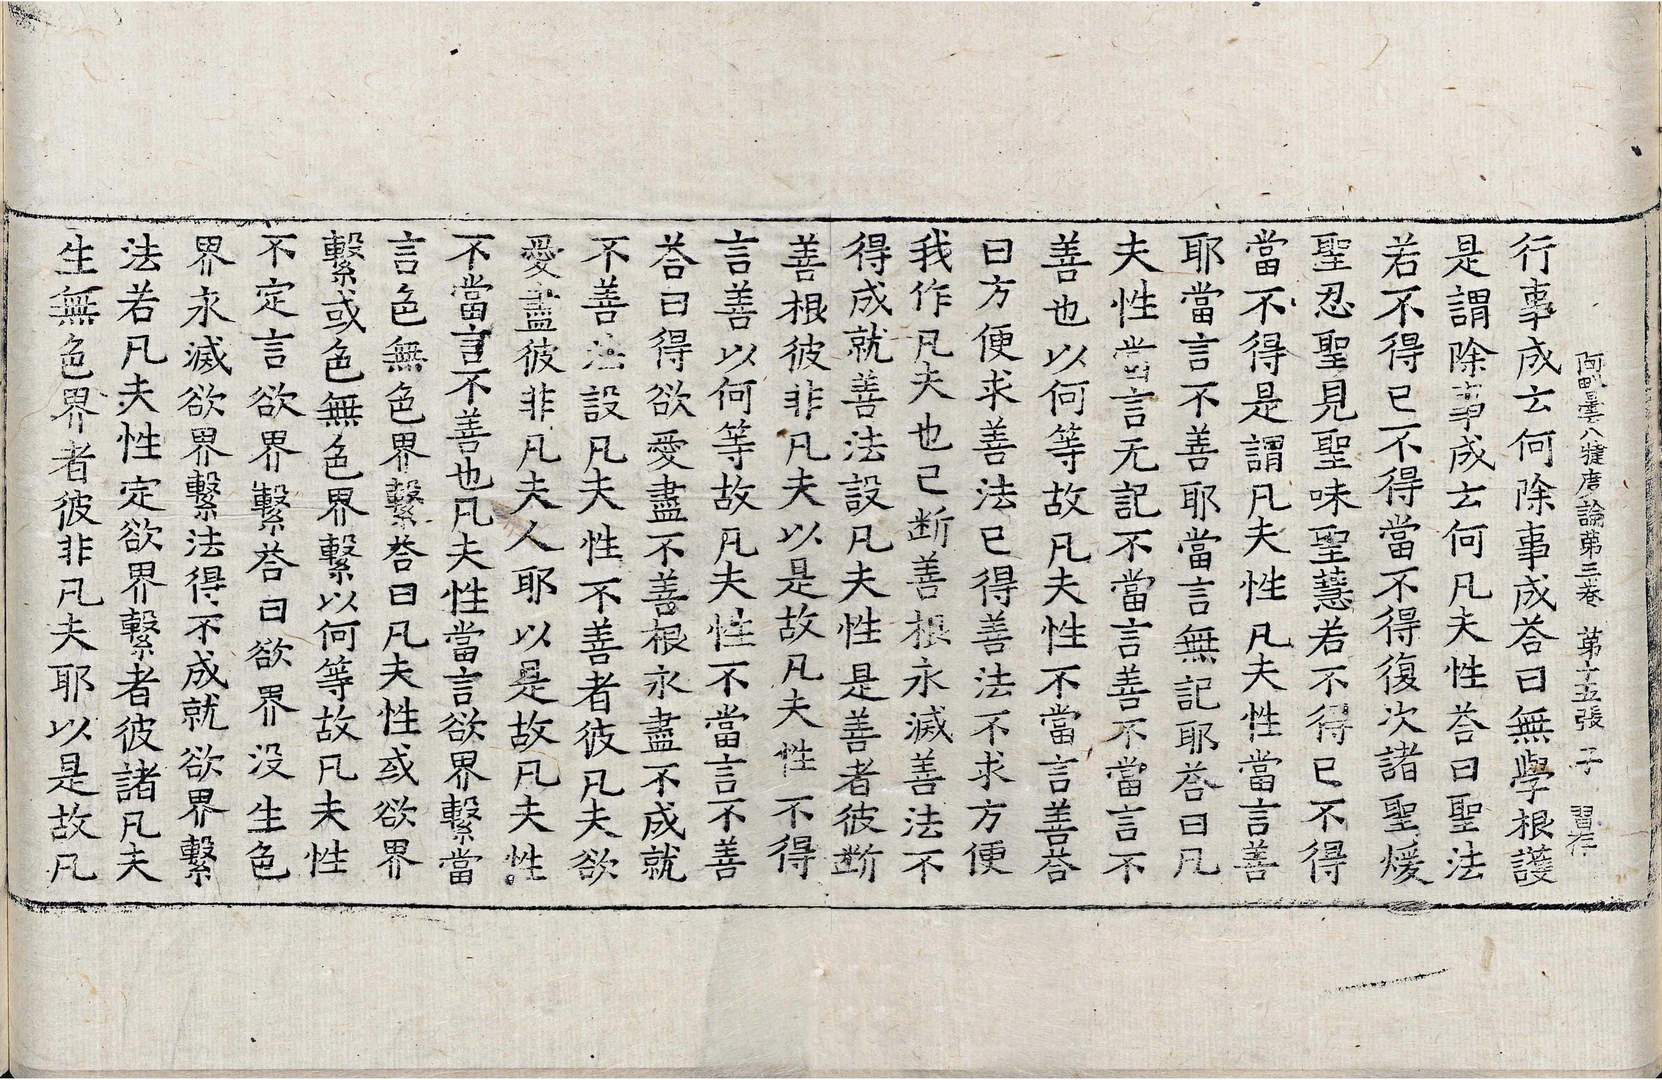 阿毗曇八犍度論第三卷　第十五張　子
行事成云何除事成荅曰無學根護
是謂除事成云何凡夫性荅曰聖法
若不得已不得當不得復次諸聖煖
聖忍聖見聖味聖慧若不得已不得
當不得是謂凡夫性凡夫性當言善
耶當言不善耶當言無記耶荅曰凡
夫性當言无記不當言善不當言不
善也以何等故凡夫性不當言善荅
曰方便求善法已得善法不求方便
我作凡夫也已断善根永滅善法不
得成就善法設凡夫性是善者彼断
善根彼非凡夫以是故凡夫性不得
言善以何等故凡夫性不當言不善
荅曰得欲愛盡不善根永盡不成就
不善法設凡夫性不善者彼凡夫欲
愛盡彼非凡夫人耶以是故凡夫性
不當言不善也凡夫性當言欲界繫當
言色無色界繫荅曰凡夫性或欲界
繫或色無色界繫以何等故凡夫性
不定言欲界繫荅曰欲界没生色
界永滅欲界繫法得不成就欲界繫
法若凡夫性定欲界繫者彼諸凡夫
生無色界者彼非凡夫耶以是故凡